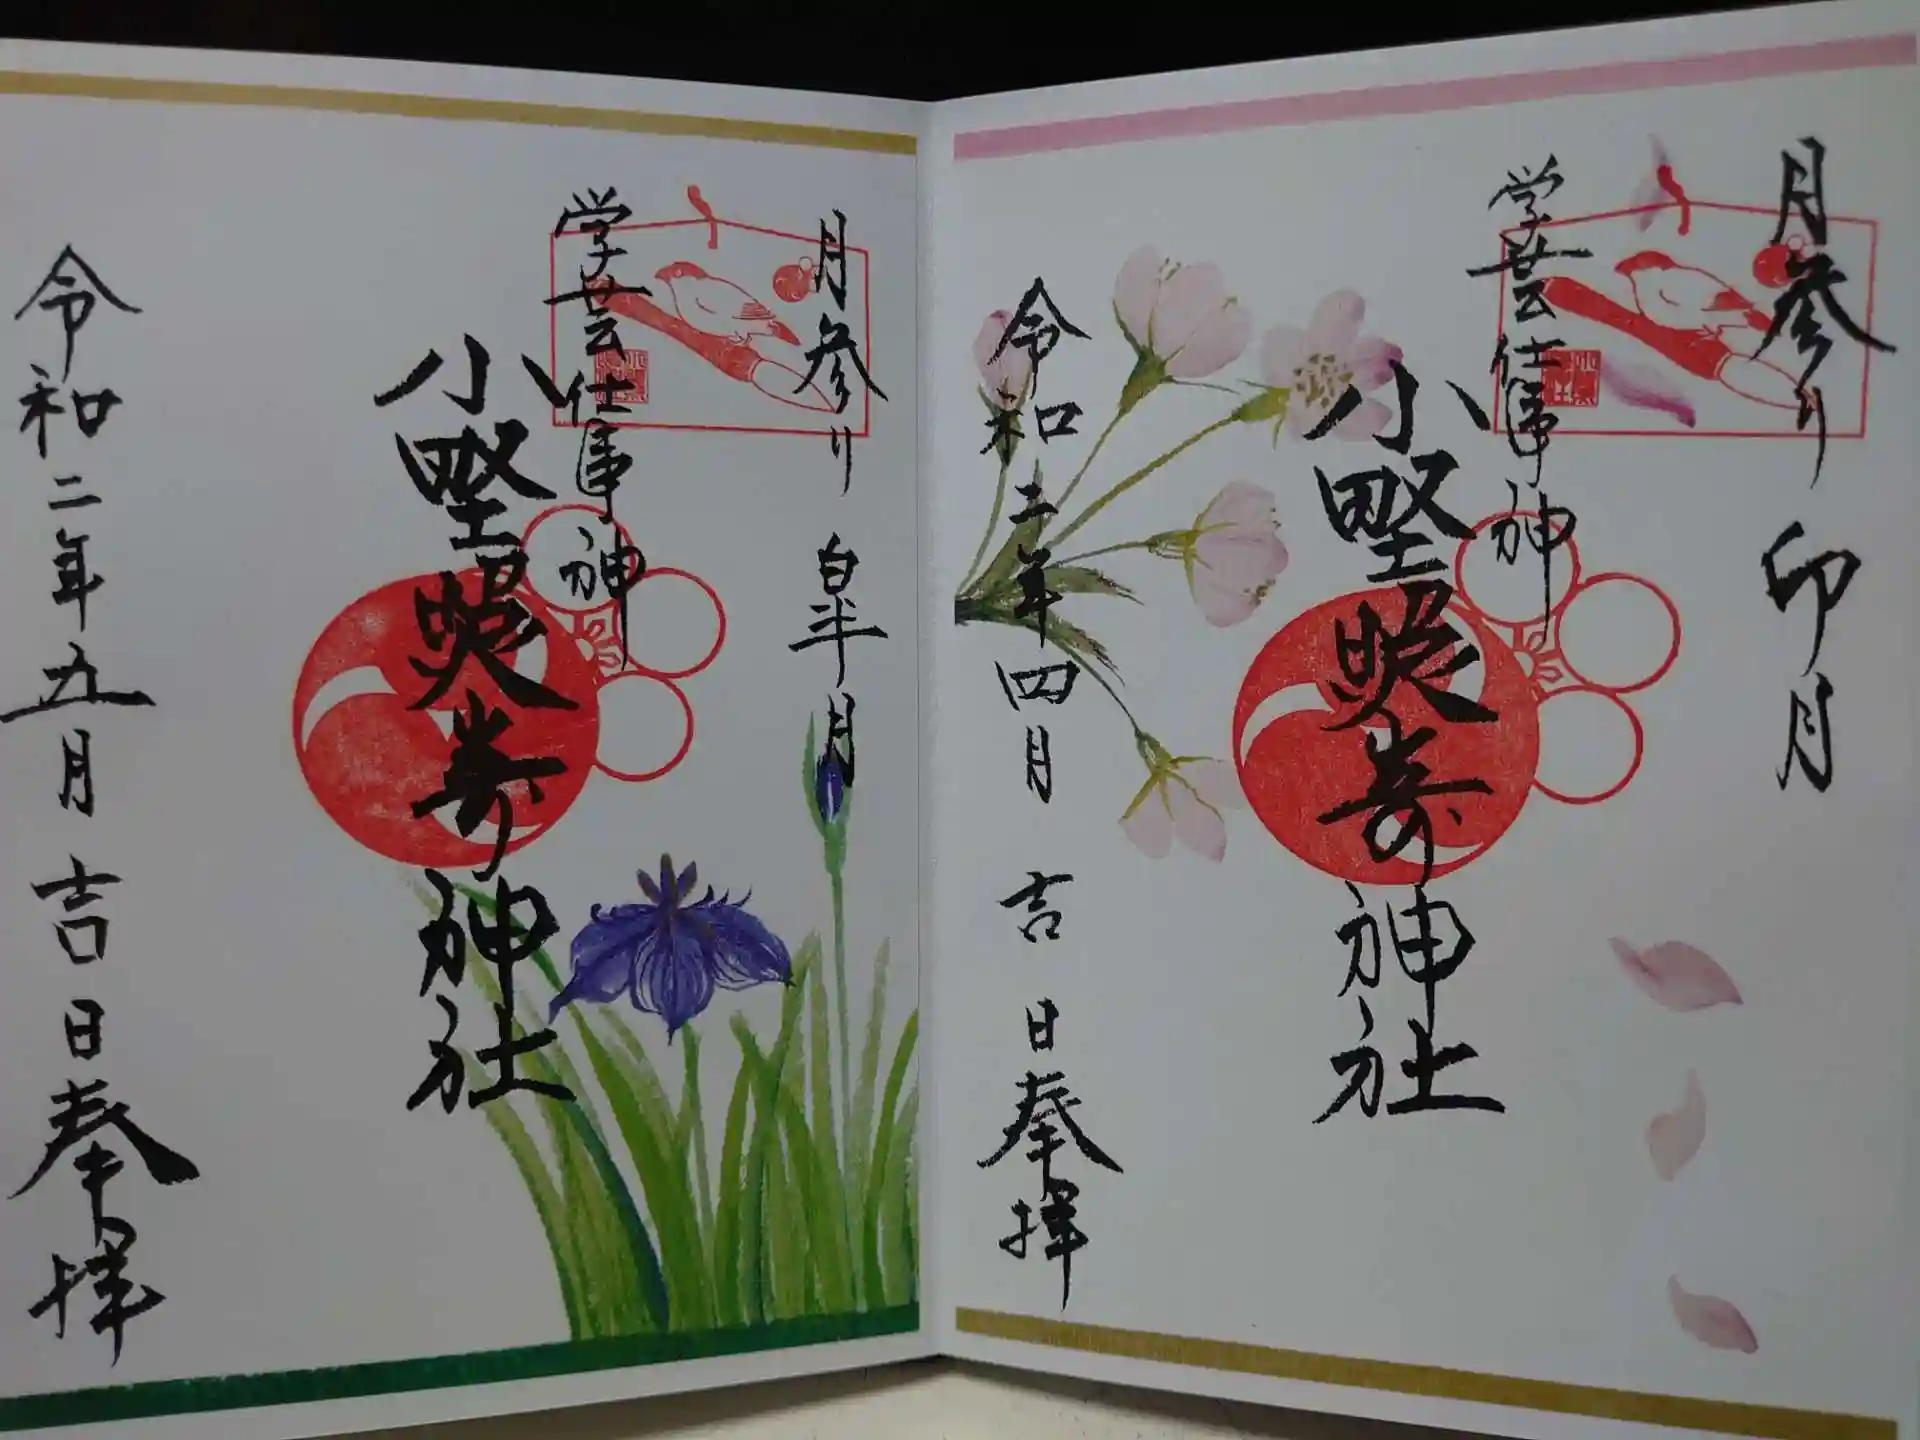 月参り 卯月
学芸仕事神
小野照崎神社
令和二年四月 吉 日 奉拝
月参り 皐月
学芸仕事神
小野照崎神社
令和二年五月 吉 日 奉拝